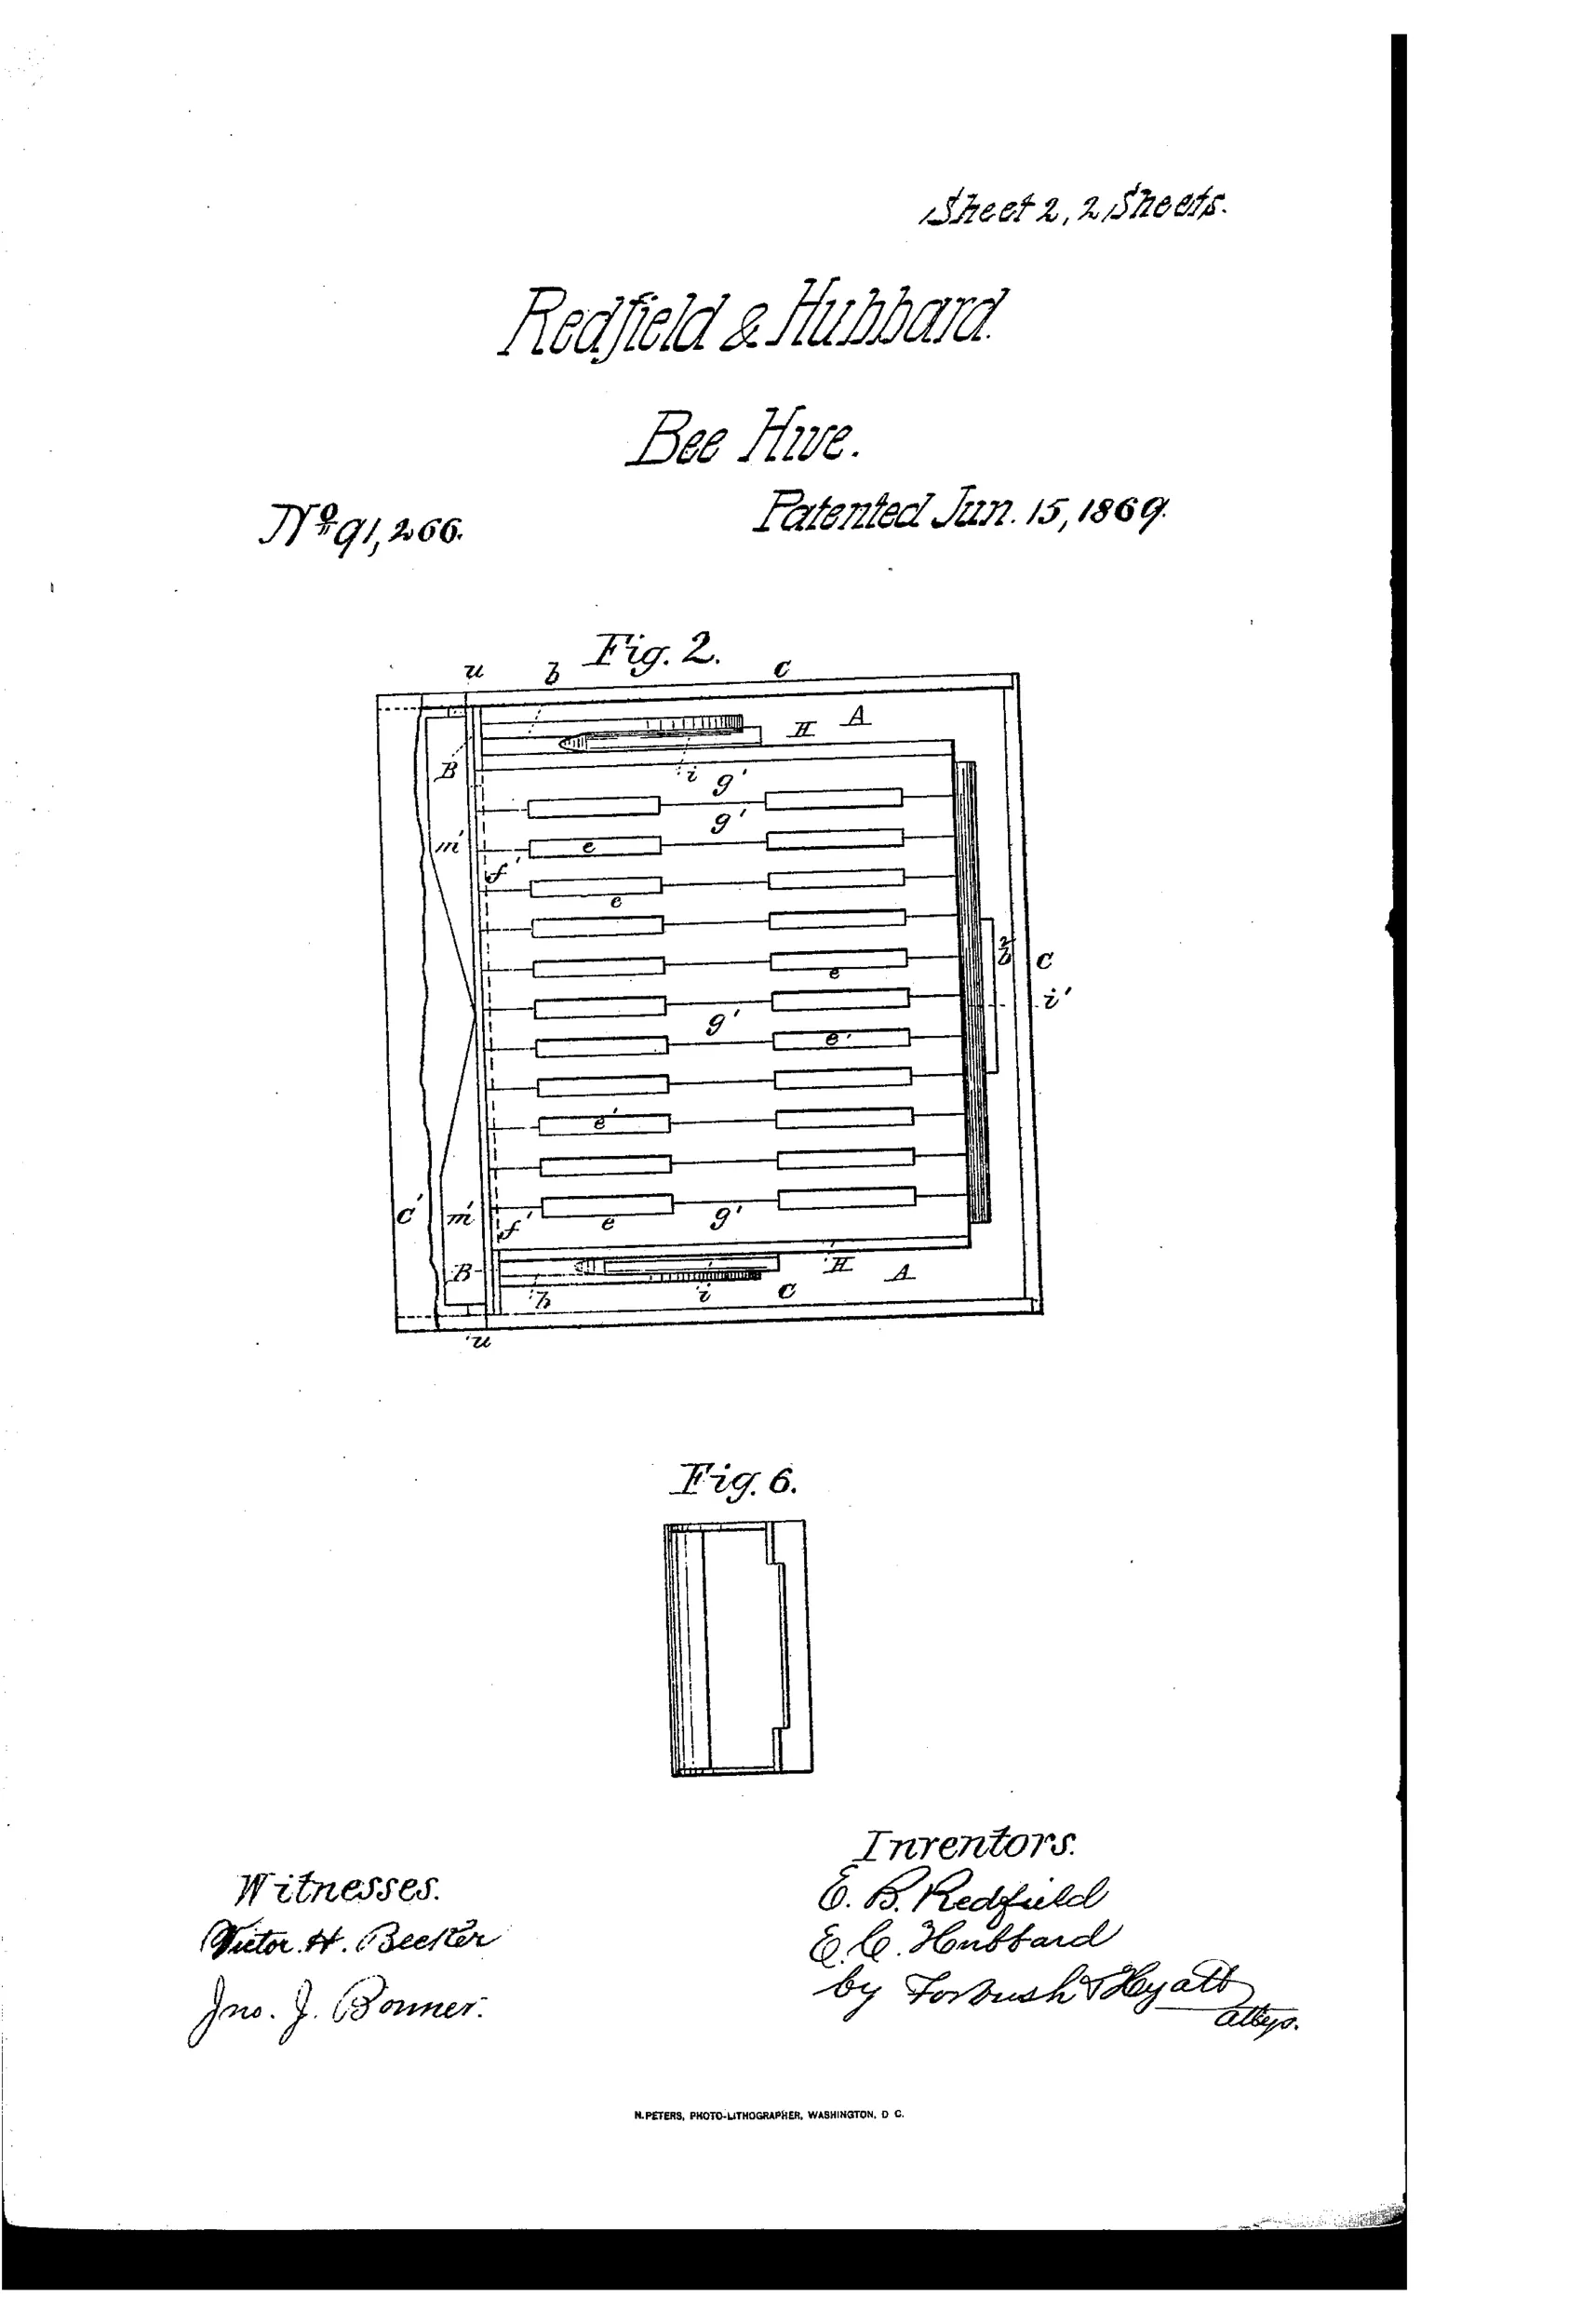 Sheet 2, 2 Sheets.
Redfield & Hubbard.
Bee Hive.
Nº 91,266.
Patented Jun. 15, 1869.
Fig. 2.
u b c
A
H
B i g'
g'
m' e
f'
e
b c
e
i'
g'
e'
e'
c' m' f' e g'
B H A
h i c
u
Fig. 6.
Inventors.
Witnesses.
E. B. Redfield
Victor H. Becker
E. C. Hubbard
by Forbush & Hyatt
Jno. J. Bonner.
attys.
N. PETERS, PHOTO-LITHOGRAPHER, WASHINGTON, D C.